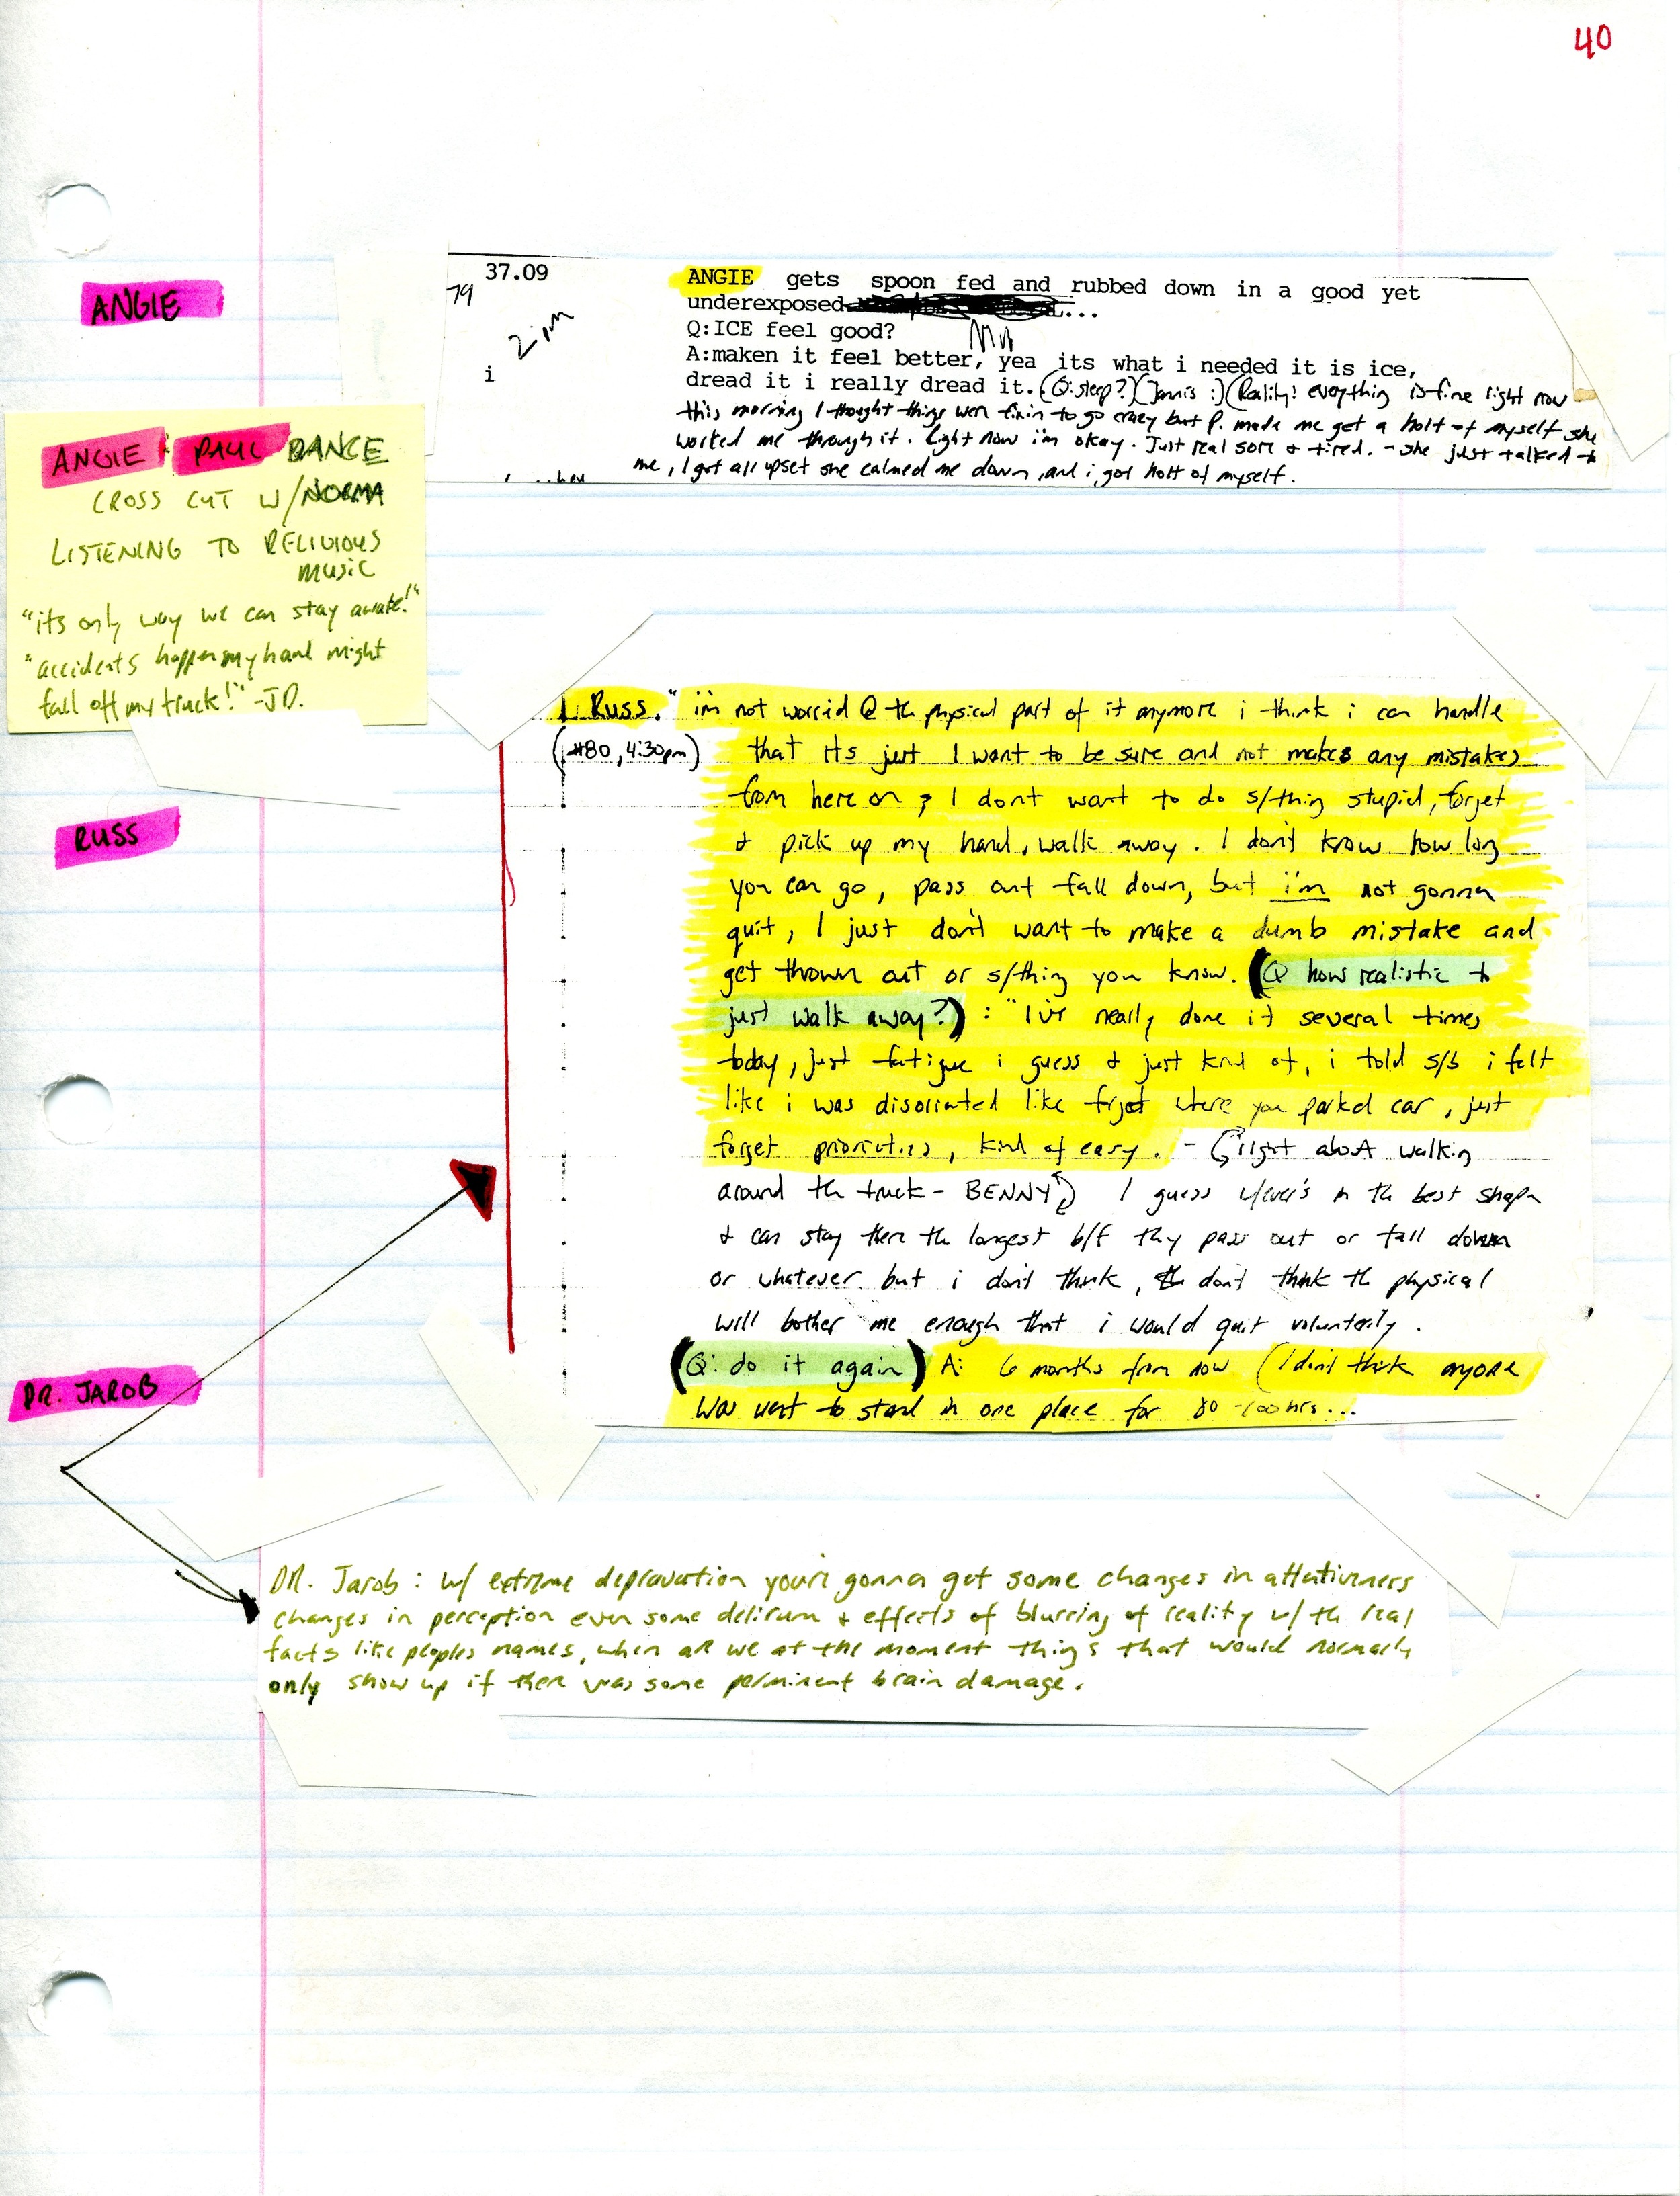 40
ANGIE
37.09
79
2 pm
i
ANGIE gets spoon fed and rubbed down in a good yet
underexposed ...
Q:ICE feel good?
A:maken it feel better, yea its what i needed it is ice,
dread it i really dread it. (Q: sleep?) (Jannis :) (Reality! everything is fine right now
this morning I thought things wern fixin to go crazy but P. made me get a holt of myself she
worked me through it. Right now i'm okay. Just real sore & tired. - she just talked to
me, I got all upset she calmed me down, and i got holt of myself.
ANGIE & PAUL DANCE
CROSS CUT W/NORMA
LISTENING TO RELIGIOUS
MUSIC
"its only way we can stay awake!"
"accidents happen my hand might
fall off my truck!" -JD.
Russ. "i'm not worried @ th physical part of it anymore i think i can handle
(#80, 4:30pm) that its just I want to be sure and not makes any mistakes
from here on & I dont want to do s/thing stupid, forget
& pick up my hand, walk away. I don't know how long
you can go, pass out fall down, but i'm not gonna
quit, I just don't want to make a dumb mistake and
get thrown out or s/thing you know. (Q how realistic to
just walk away?) : "I've nearly done it several times
today, just fatigue i guess & just kind of, i told s/b i felt
like i was disoriented like forget where you parked car, just
forget priorities, kind of easy. - (right about walking
around th truck - BENNY) I guess w/ever's in th best shape
& can stay there th longest b/f they pass out or fall down
or whatever but i don't think, don't think th physical
will bother me enough that i would quit voluntarily.
(Q: do it again) A: 6 months from now (I don't think anyone
was ment to stand in one place for 80-100 hrs...
RUSS
DR. JAROB
DR. Jarob: w/ extreme depravation you're gonna get some changes in attentiveness
changes in perception even some delirum & effects of blurring of reality w/ th real
facts like peoples names, when are we at the moment things that would normally
only show up if ther was some perminent brain damage.